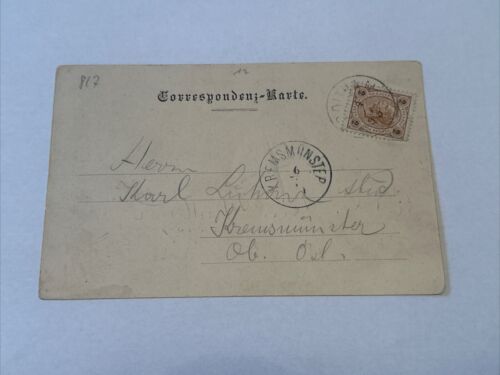 817
12
Correspondenz-Karte.
KREMSMÜNSTER
6
Herrn
Karl stud.
Kremsmünster
Ob. Öst.